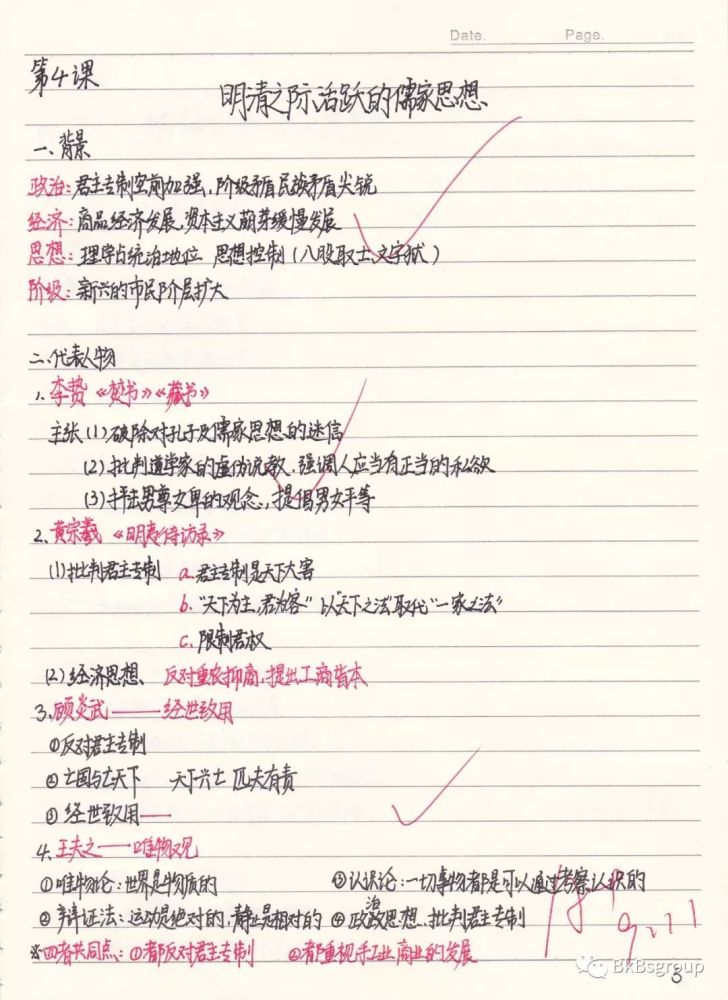 Date.  Page.
第4课
明清之际活跃的儒家思想
一、背景
政治：君主专制空前加强，阶级矛盾民族矛盾尖锐
经济：商品经济发展，资本主义萌芽缓慢发展
思想：理学占统治地位 思想控制（八股取士，文字狱）
阶级：新兴的市民阶层扩大
二、代表人物
1、李贽《焚书》《藏书》
主张（1）破除对孔子及儒家思想的迷信
（2）批判道学家的虚伪说教，强调人应当有正当的私欲
（3）抨击男尊女卑的观念，提倡男女平等
2、黄宗羲《明夷待访录》
（1）批判君主专制 a.君主专制是天下大害
b. “天下为主，君为客” 以“天下之法”取代“一家之法”
c. 限制君权
（2）经济思想 反对重农抑商，提出工商皆本
3、顾炎武——经世致用
①反对君主专制
②亡国与亡天下 天下兴亡 匹夫有责
③经世致用——
4、王夫之——唯物观
①唯物论：世界是物质的 ③认识论：一切事物都是可以通过考察认识的
②辩证法：运动是绝对的，静止是相对的 ④政治思想、批判君主专制
※四者共同点：①都反对君主专制 ②都重视手工业商业的发展
9.11
BkBsgroup
3